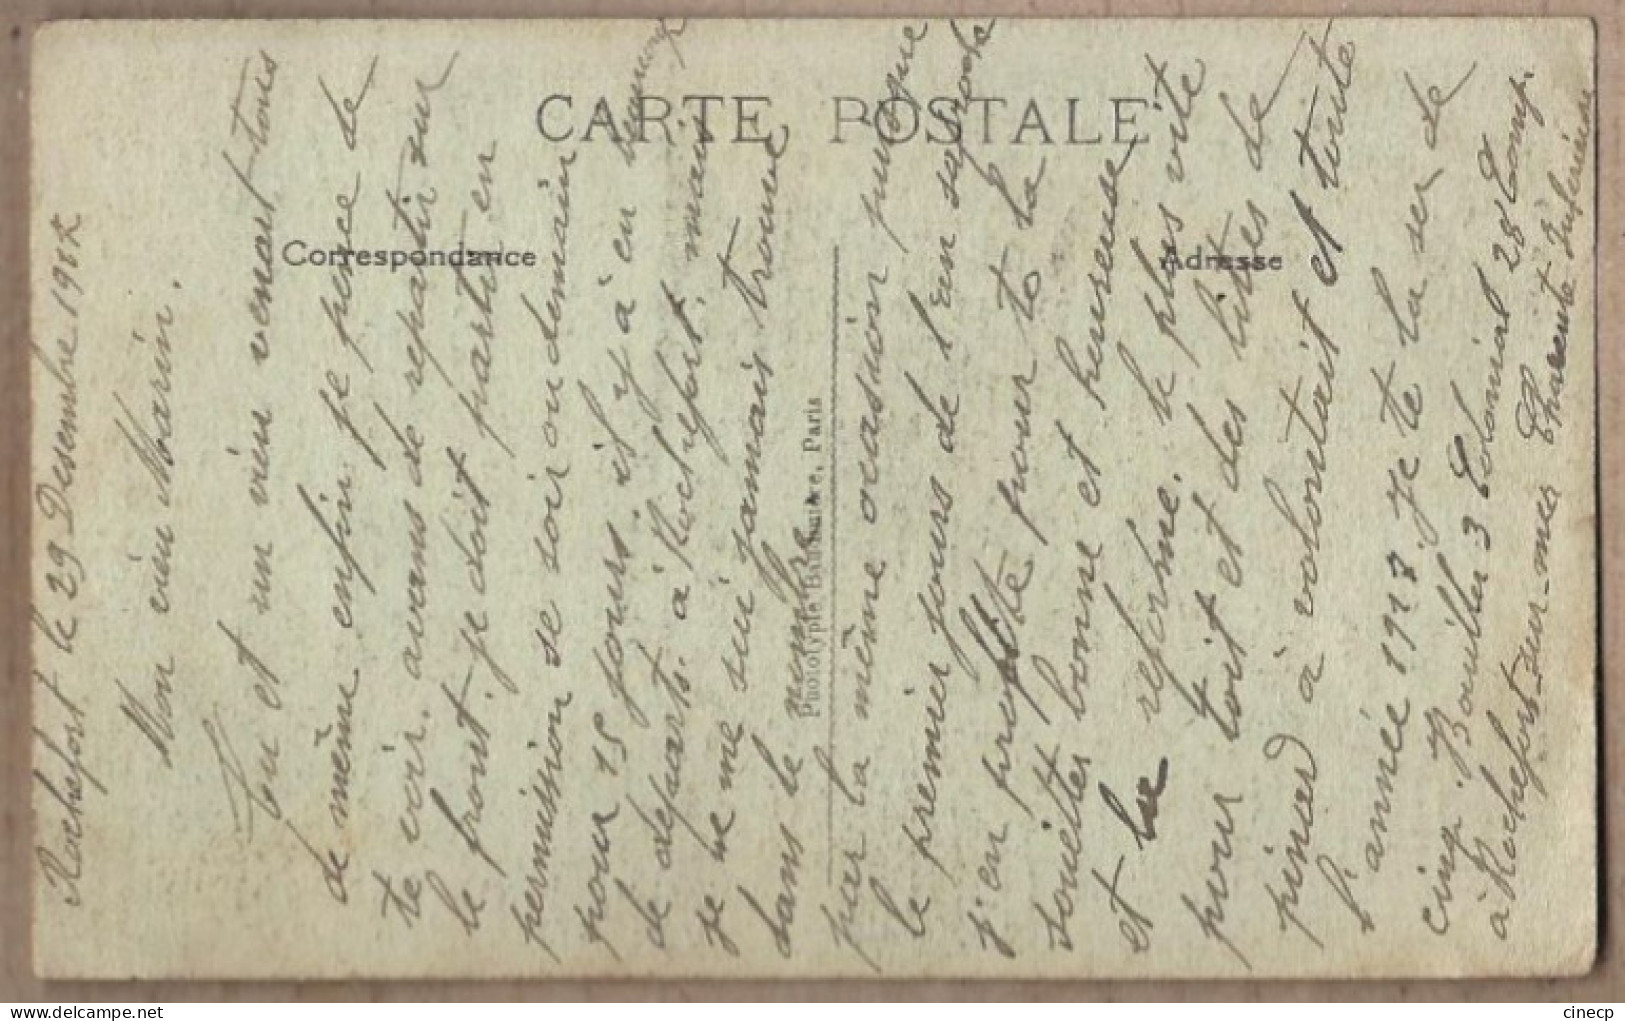 CARTE POSTALE
Correspondance
Adresse
Phototypie Baudinière, Paris
Rochefort le 29 Desembre 1917
Mon vieu Marin.
Tou et un vieu venart tous
de même enfin je pence de
te voir. avans de repartir sur
le front. je doit partir en
permission se soir ou demain
pour 15 jours. il y à en
de departs. à Rochefort. mais
je ne me sui jamais trouve
dans le nombre
par la même ocassion puisque
le premier jours de l'en saproche
j'en profitte pour to la
souetter bonne et heureuse
et la reforme. le plus vite
pour toit et des lites de
pinard à volontait et toute
l'année 1918 je te la ser de
cinq. Bouiller 3 Colonial 28 Comp.
à Rochefort-sur-mer Charente Inferieure
cinecp